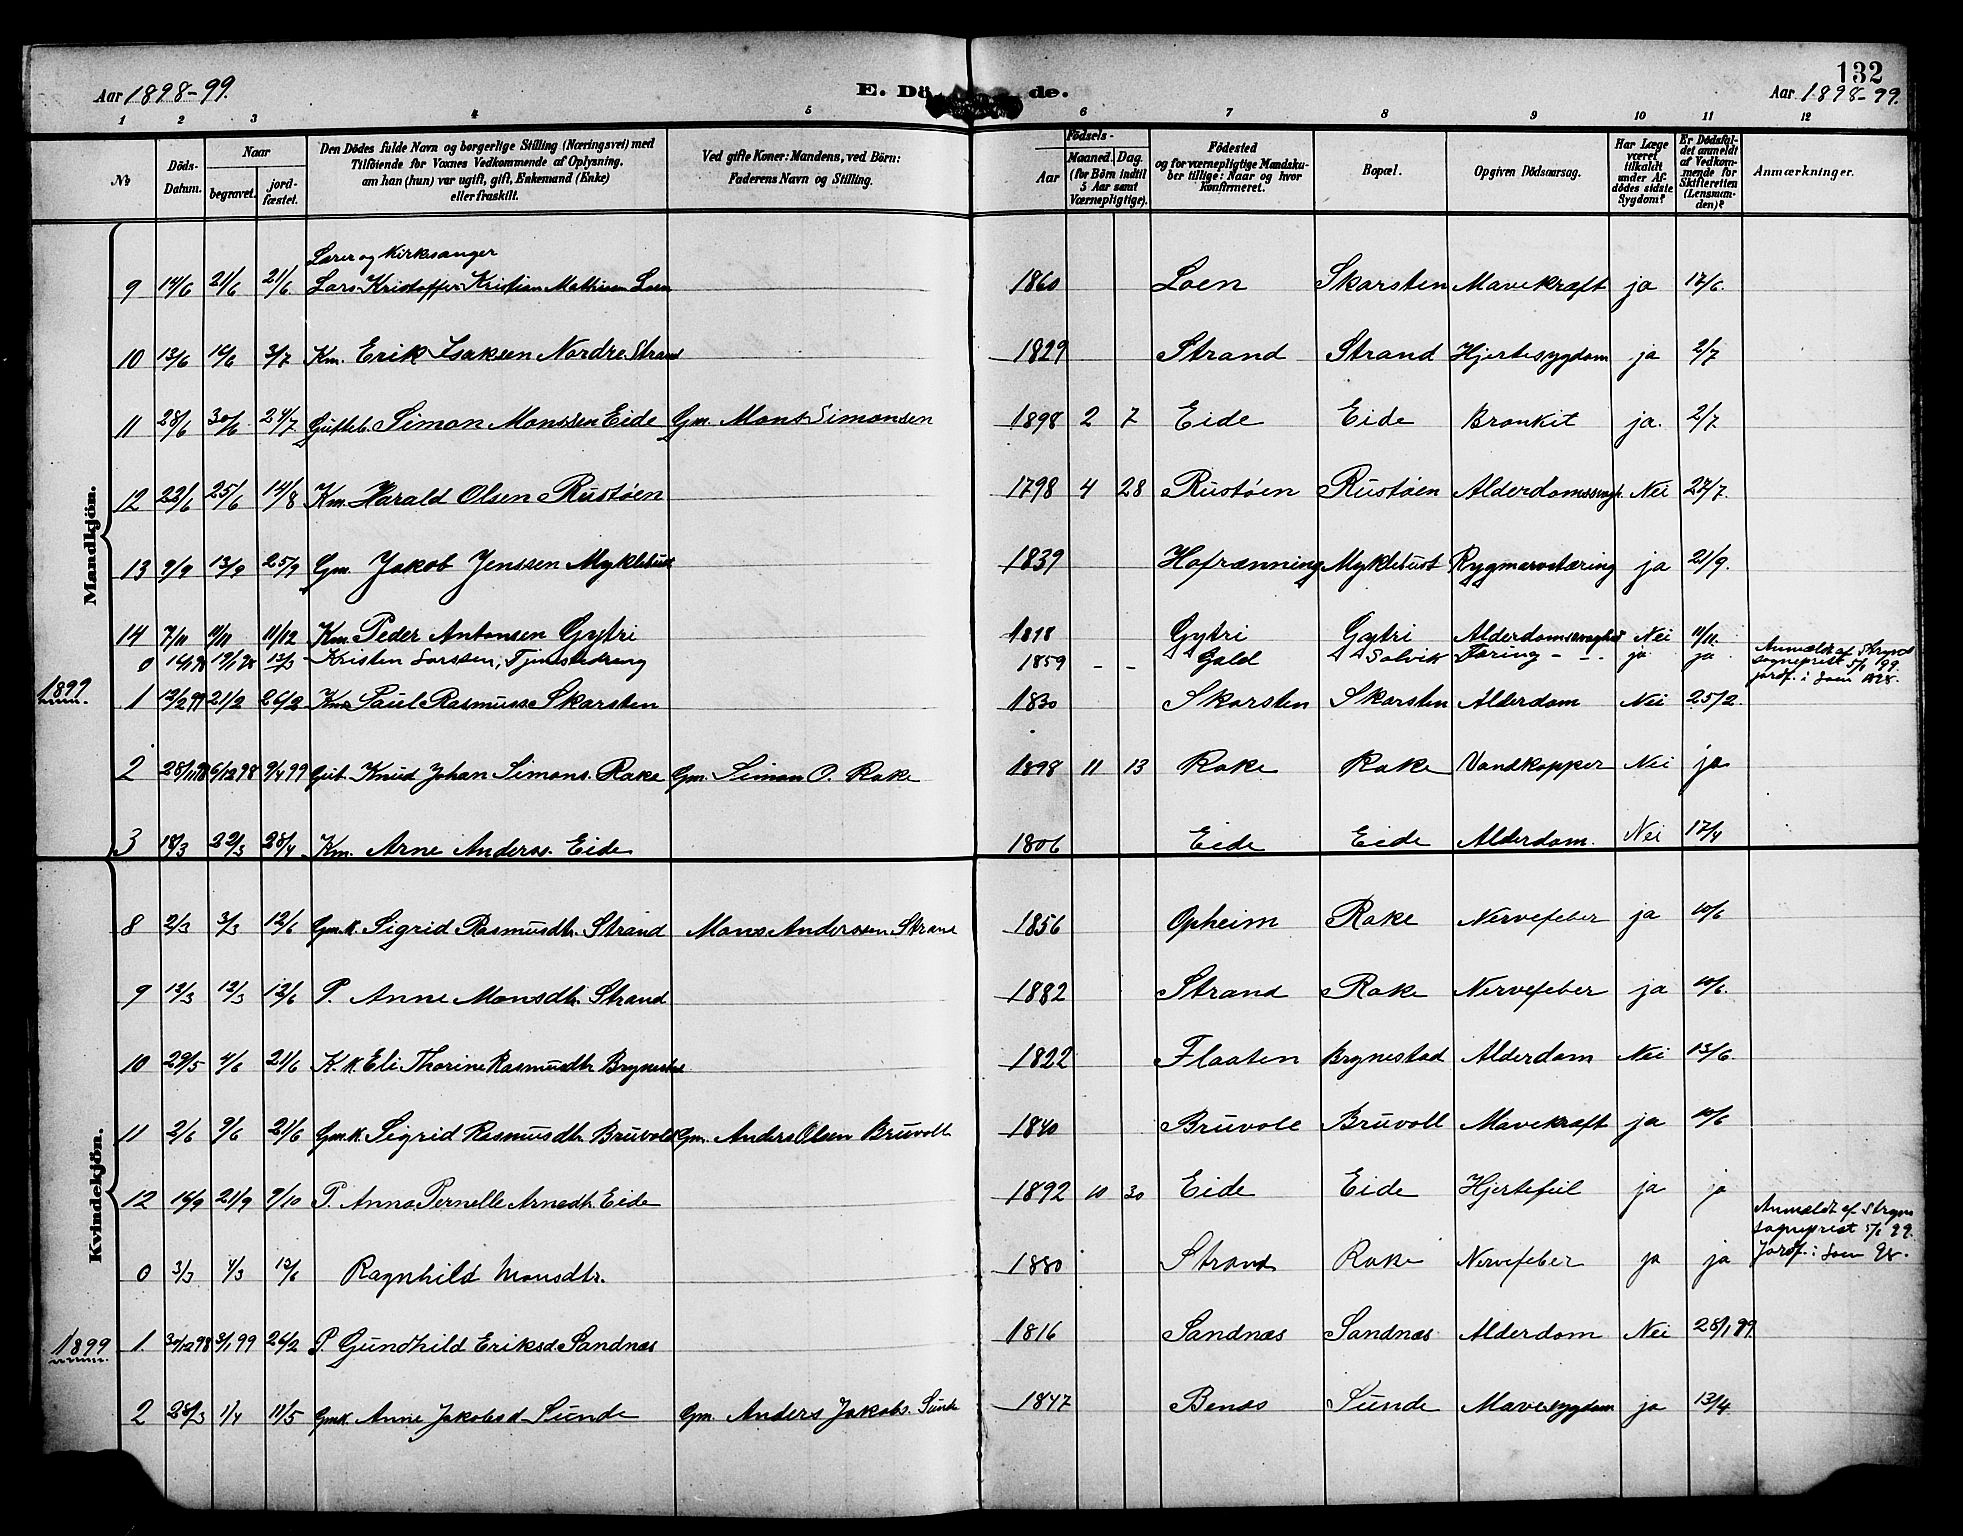 132
Aar 1898-99.
E. Dö de.
Aar 1898-99.
1 2 3 4 5 6 7 8 9 10 11 12
№
Döds-Datum.
Naar
begravet.
jord-fæstet.
Den Dödes fulde Navn og borgerlige Stilling (Næringsvei) med
Tilföiende for Voxnes Vedkommende af Oplysning,
om han (hun) var ugift, gift, Enkemand (Enke)
eller fraskilt.
Ved gifte Koner: Mandens, ved Börn:
Faderens Navn og Stilling.
Födsels-
Aar
Maaned. Dag.
(for Börn indtil
5 Aar samt
Værnepligtige).
Födested
og for værnepligtige Mandsku-
ber tillige: Naar og hvor
konfirmeret.
Bopæl.
Opgiven Dödsaarsag.
Har Læge
været
tilkaldt
under Af-
dödes sidste
Sygdom?
Er Dödsfal-
det anmeldt
af Vedkom-
mende for
Skifteretten
(Lensman-
den)?
Anmærkninger.
Mandkjön.
Lærer og Kirkesanger
9 14/6 21/6 21/6 Lars Kristoffer Kristian Mathisen Loen 1860 Loen Skarsten Mavekræft ja 17/6.
10 13/6 16/6 3/7 Km. Erik Isaksen Nordre Strand 1829 Strand Strand Hjertesygdom ja 2/7
11 28/6 30/6 24/7 Gutteb. Simon Monssen Eide Gm. Mons Simonsen 1898 2 7 Eide Eide Bronkit ja. 2/7
12 22/6 25/6 14/8 Km. Harald Olsen Rustöen 1798 4 28 Rustöen Rustöen Alderdomssvagh. Nei 27/7.
13 9/9 13/9 25/9 Gm. Jakob Jenssen Myklebust 1839 Hofrænning Myklebust Rygmarvstæring ja 21/9.
14 7/11 11/11 11/12 Km. Peder Antonsen Gytri 1818 Gytri Gytri Alderdomssvaghed Nei 11/11.
0 Kristen Larssen, Tjenestedreng 1859 - - Gald Solvik Tæring - - ja ja
Anmeldt af Stryns
sogneprest 5/1 99.
jordf. i Loen 1898.
1899
1 12/2 99 21/2 26/2 Km Paul Rasmuss Skarsten 1830 Skarsten Skarsten Alderdom Nei 25/2.
2 28/11 98 6/12 98 9/4 99 Gut. Knud Johan Simons. Rake Gm. Simon O. Rake 1898 11 13 Rake Rake Vandkopper Nei ja
3 18/3 22/3 28/4 Km. Arne Anderss. Eide 1806 Eide Eide Alderdom. Nei 17/4
Kvindekjön.
8 2/3 3/3 12/6 Gm.K. Sigrid Rasmusdtr. Strand Mons Anderssen Strand 1856 Opheim Rake Nervefeber ja 10/6
9 12/3 12/3 12/6 P. Anne Monsdtr. Strand 1882 Strand Rake Nervefeber ja 10/6.
10 29/5 4/6 21/6 K. K. Eli Thorine Rasmusdtr Brynestad 1822 Flaaten Brynestad Alderdom Nei 13/6
11 2/6 9/6 21/6 Gm.K. Sigrid Rasmusdtr. Bruvold Gm. Anders Olsen Bruvoll 1840 Bruvoll Bruvoll Mavekræft ja 10/6
12 16/9 21/9 9/10 P. Anna Pernelle Arnedtr. Eide 1892 10 30 Eide Eide Hjertefeil ja ja
Anmeldt af Stryns
sogneprest 5/1 99.
Jordf. i Loen 98.
0 3/3 4/3 12/6 Ragnhild Monsdtr. 1880 Strand Rake Nervefeber ja ja
1899
1 30/12 98 3/1 99 26/2 P. Gundhild Eriksd. Sandnæs 1816 Sandnæs Sandnæs Alderdom Nei 28/1 99.
2 28/3 1/4 11/5 Gm.K. Anne Jakobsd Sunde Gm. Anders Jakobs. Sunde 1847 Benæs Sunde Mavesygdom ja 13/4